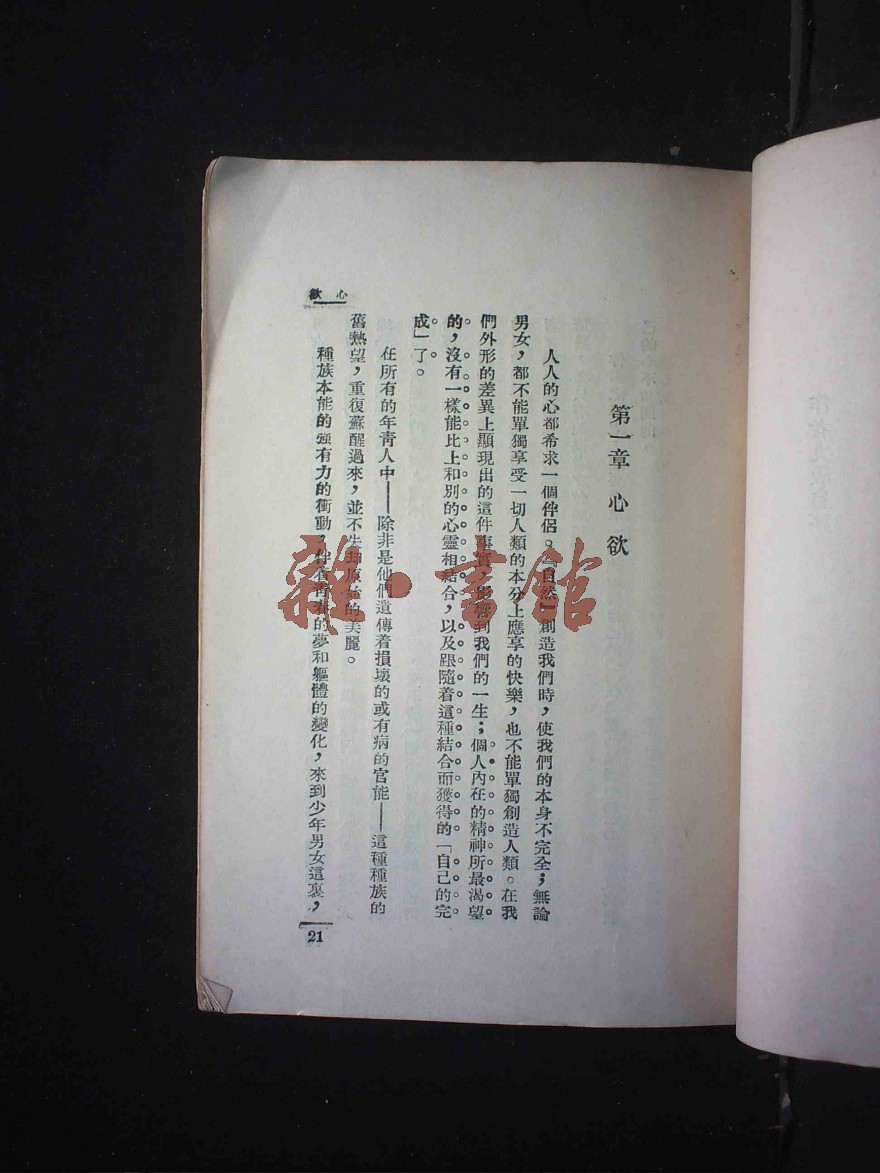 第一章 心欲
人人的心都希求一個伴侶。『自然』創造我們時，使我們的本身不完全；無論
男女，都不能單獨享受一切人類的本分上應享的快樂，也不能單獨創造人類。在我
們外形的差異上顯現出的這件事實，影響到我們的一生；個人內在的精神所最渴望
的，沒有一樣能比上和別的心靈相結合，以及跟隨着這種結合而獲得的「自己的完
成」了。
在所有的年青人中——除非是他們遺傳着損壞的或有病的官能——這種種族的
舊熱望，重復蘇醒過來，並不失却原始的美麗。
種族本能的強有力的衝動，伴着青春的夢和軀體的變化，來到少年男女這裏，
心欲
21
雜·書館